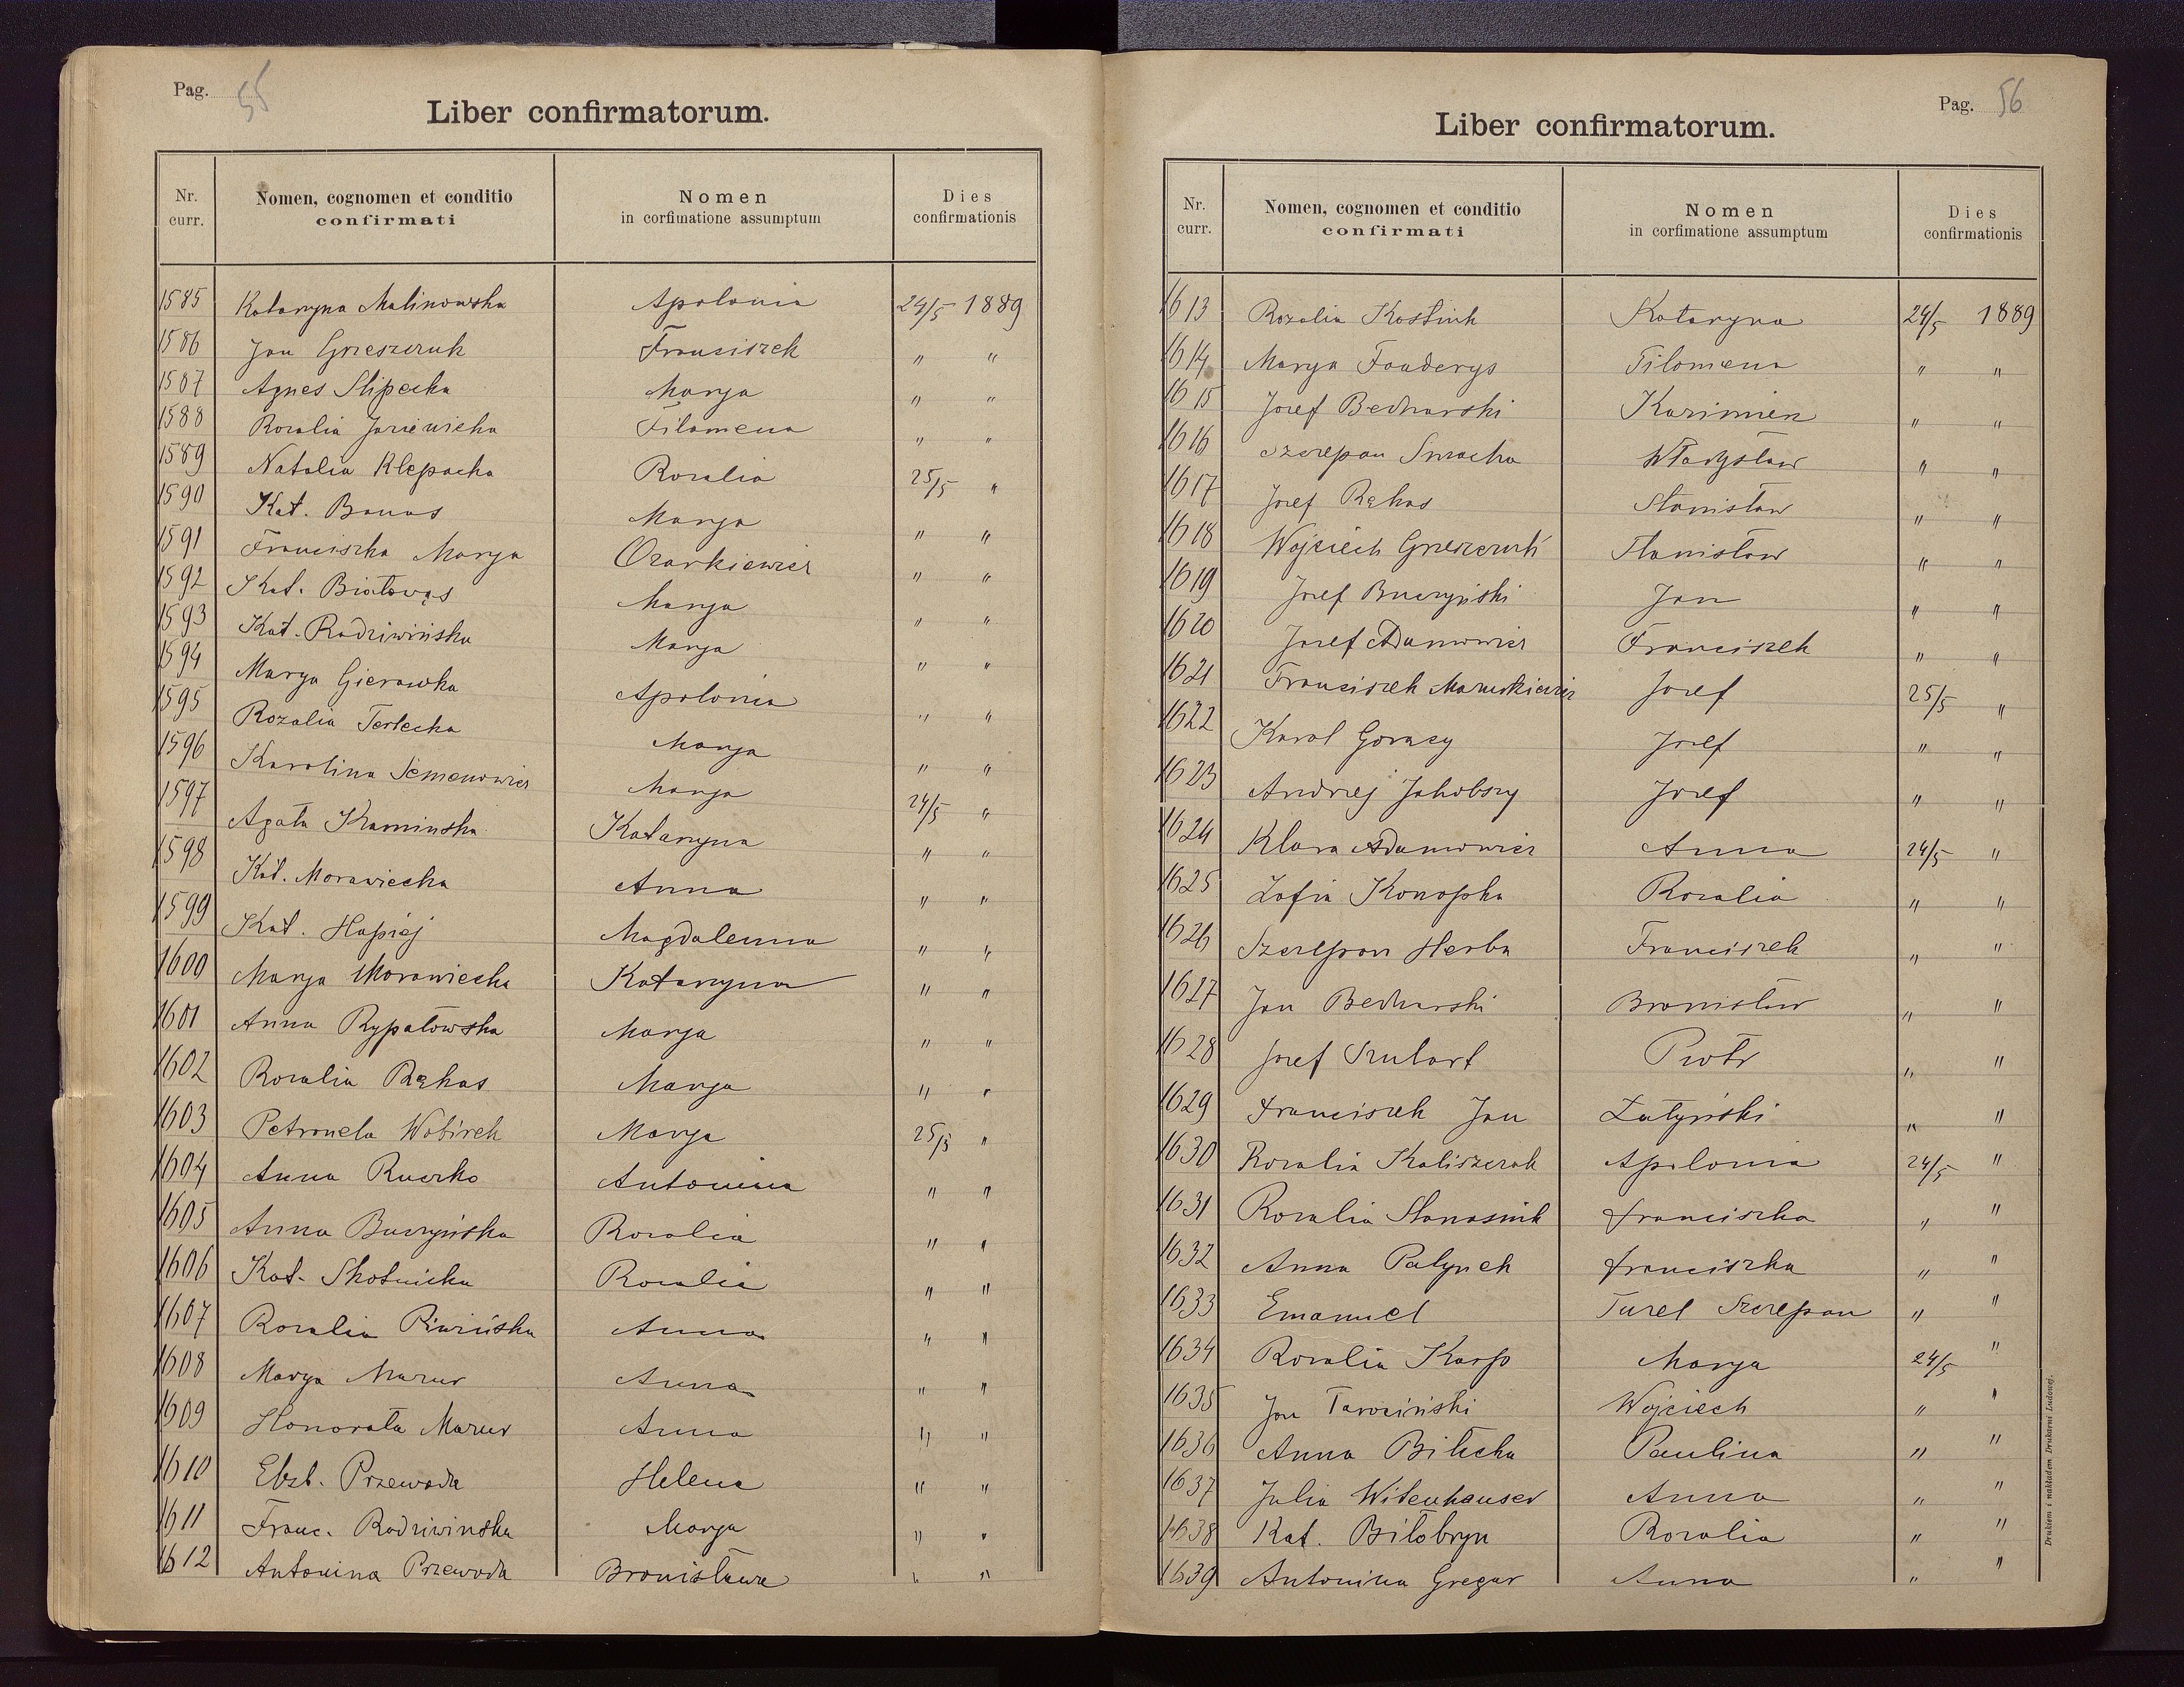 Pag. 55
Liber confirmatorum.
Nr. curr. | Nomen, cognomen et conditio confirmati | Nomen in corfimatione assumptum | Dies confirmationis
1585 Kataryna Malinowska Apolonia 24/5 1889
1586 Jan Grzeszczuk Franciszek " "
1587 Agnes Slipecka Marya " "
1588 Rozalia Filomena " "
1589 Natalia Klepacka Rozalia 25/5 "
1590 Kat. Banas Marya " "
1591 Franciszka Marya Ozarkiewicz " "
1592 Kat. Białowąs Marya " "
1593 Kat. Radziwińska Marya " "
1594 Marya Gierowka Apolonia " "
1595 Rozalia Terlecka Marya " "
1596 Karolina Semenowicz Marya 24/5 "
1597 Agata Kaminska Kataryna " "
1598 Kat. Morawiecka Anna " "
1599 Kat. Hapiej Magdalenna " "
1600 Marya Morawiecka Kataryna " "
1601 Anna Rypałowska Marya " "
1602 Rozalia Rękas Marya " "
1603 Petronela Wobirek Marya 25/5 "
1604 Anna Ruczko Antonina " "
1605 Anna Buczyńska Rozalia " "
1606 Kat. Skotnicka Rozalia " "
1607 Rozalia Anna " "
1608 Marya Mazur Anna " "
1609 Honorata Mazur Anna " "
1610 Elzb. Przewoda Helena " "
1611 Franc. Radziwinska Marya " "
1612 Antonina Przewoda Bronisława " "
Pag. 56
Liber confirmatorum.
Nr. curr. | Nomen, cognomen et conditio confirmati | Nomen in corfimatione assumptum | Dies confirmationis
1613 Rozalia Kostiuk Kataryna 24/5 1889
1614 Marya Fonderys Filomena " "
1615 Josef Bednarski Kazimierz " "
1616 Szczepan Władysław " "
1617 Josef Rękas Stanisław " "
1618 Wojciech Grzeszczuk Stanisław " "
1619 Josef Buczyński Jan " "
1620 Josef Adamowicz Franciszek " "
1621 Franciszek Maruszkiewicz Josef 25/5 "
1622 Karol Goracy Josef " "
1623 Andrzej Jakobszy Josef " "
1624 Klara Adamowicz Anna 24/5 "
1625 Zofia Konopka Rozalia " "
1626 Szczepan Herba Franciszek " "
1627 Jan Bednarski Bronisław " "
1628 Josef Szulart Piotr " "
1629 Franciszek Jan Załyński " "
1630 Rozalia Kaliszczak Apolonia 24/5 "
1631 Rozalia Stanasiuk Franciszka " "
1632 Anna Palynek Franciszka " "
1633 Emanuel Turel Szczepan " "
1634 Rozalia Karp Marya 24/5 "
1635 Jan Tarociński Wojciech " "
1636 Anna Bilecka Paulina " "
1637 Julia Witenhauser Anna " "
1638 Kat. Biłobryn Rozalia " "
1639 Antonina Gregar Anna " "
Drukiem i nakładem Drukarni Ludowej.